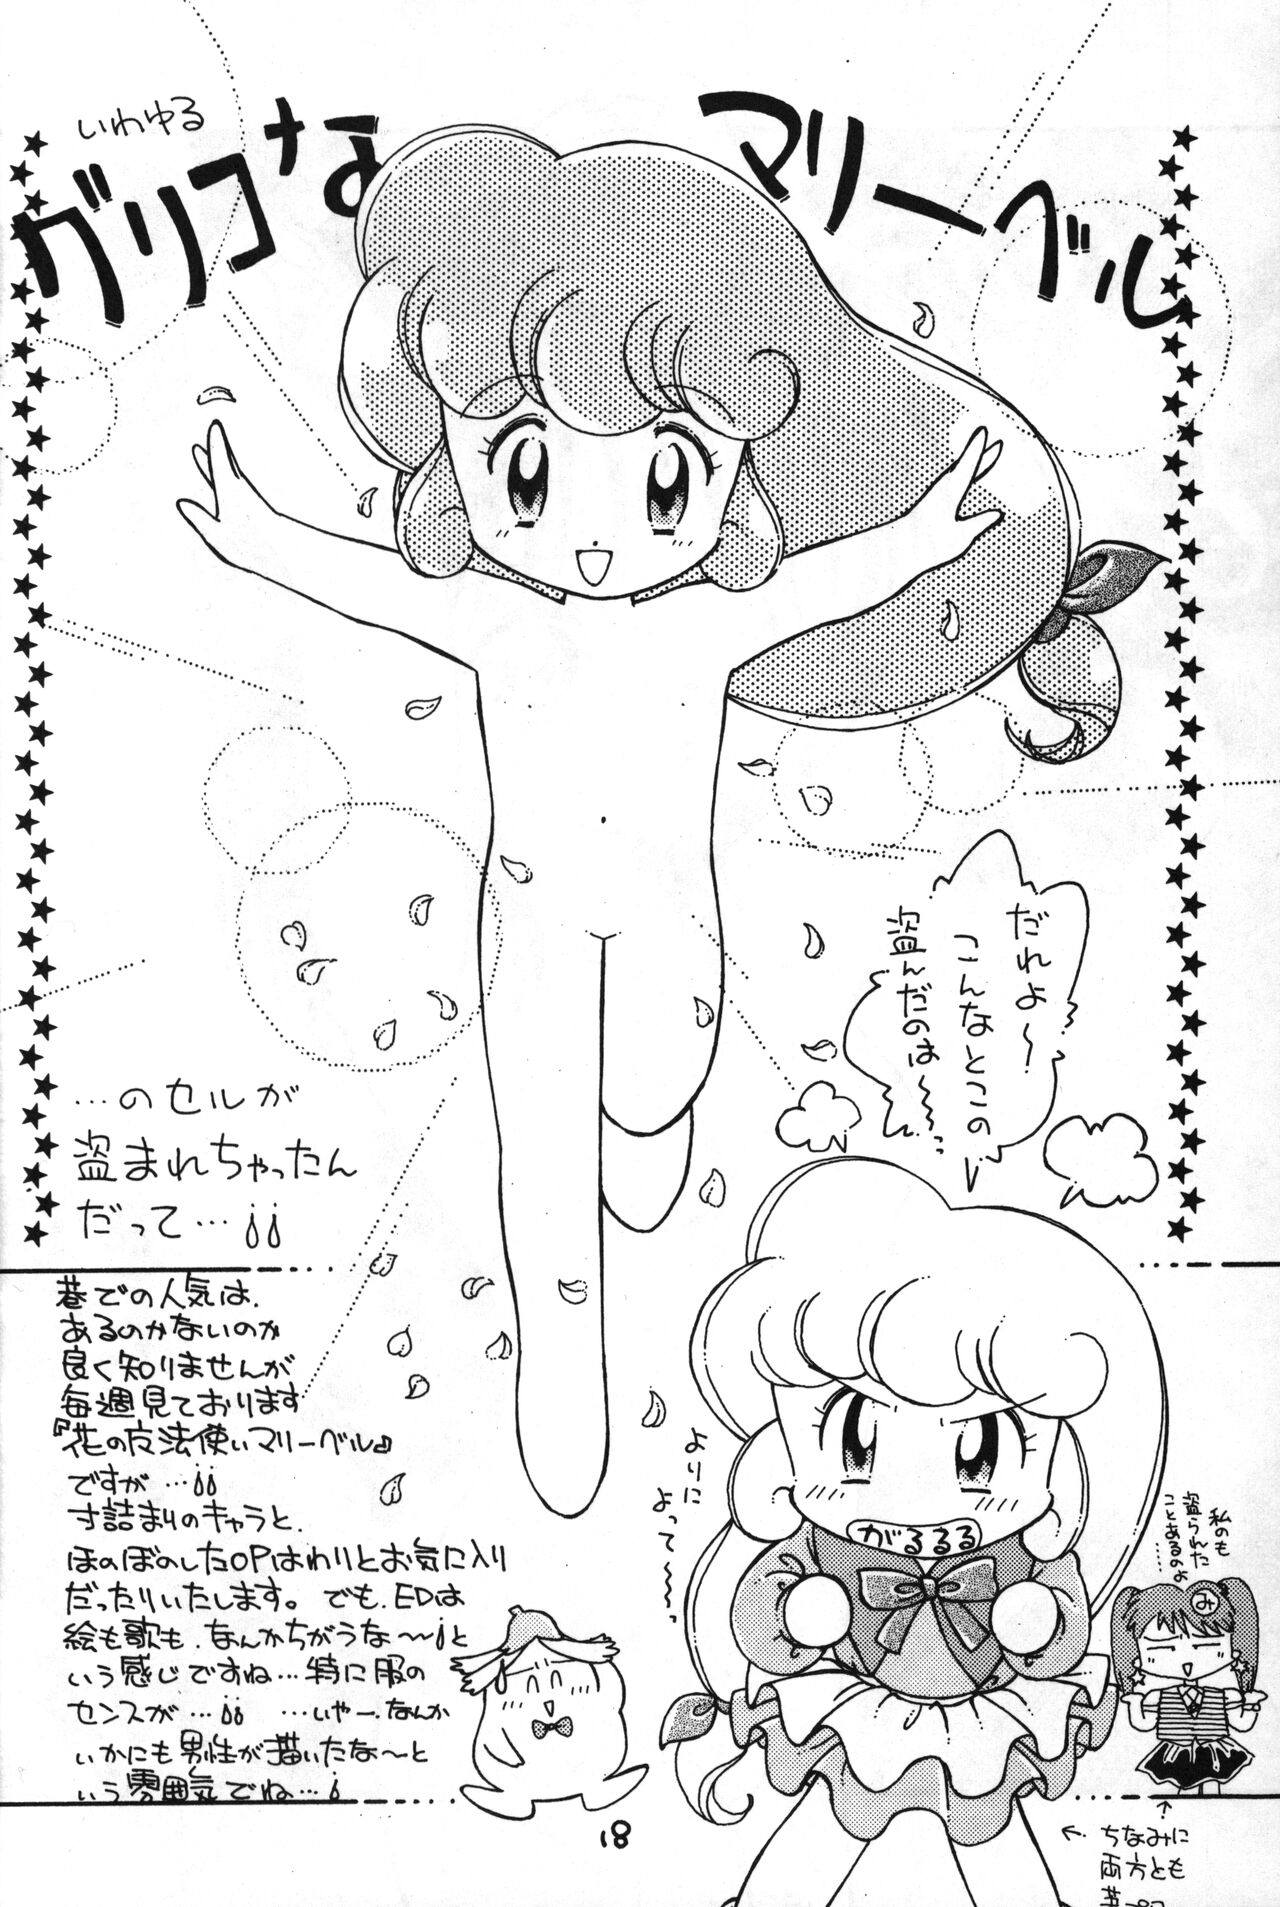 いわゆる
ガリコな
マリーベル
だれよ〜
こんなとこの
盗んだのは〜〜〜っ
…のセルが
盗まれちゃったん
だって…
巷での人気は、
あるのかないのか
良く知りませんが
毎週見ております
『花の魔法使いマリーベル』
ですが…
寸詰まりのキャラと、
ほのぼのしたOPはわりとお気に入り
だったりいたします。でも、EDは
絵も歌も、なんかちがうな〜と
いう感じですね…特に服の
センスが… …いやー、なんか
いかにも男性が描いたな〜と
いう雰囲気でね…
よりに
よって〜〜〜っ
がるるる
私のも
盗られた
ことあるのよ
……
み
ちなみに
両方とも
18